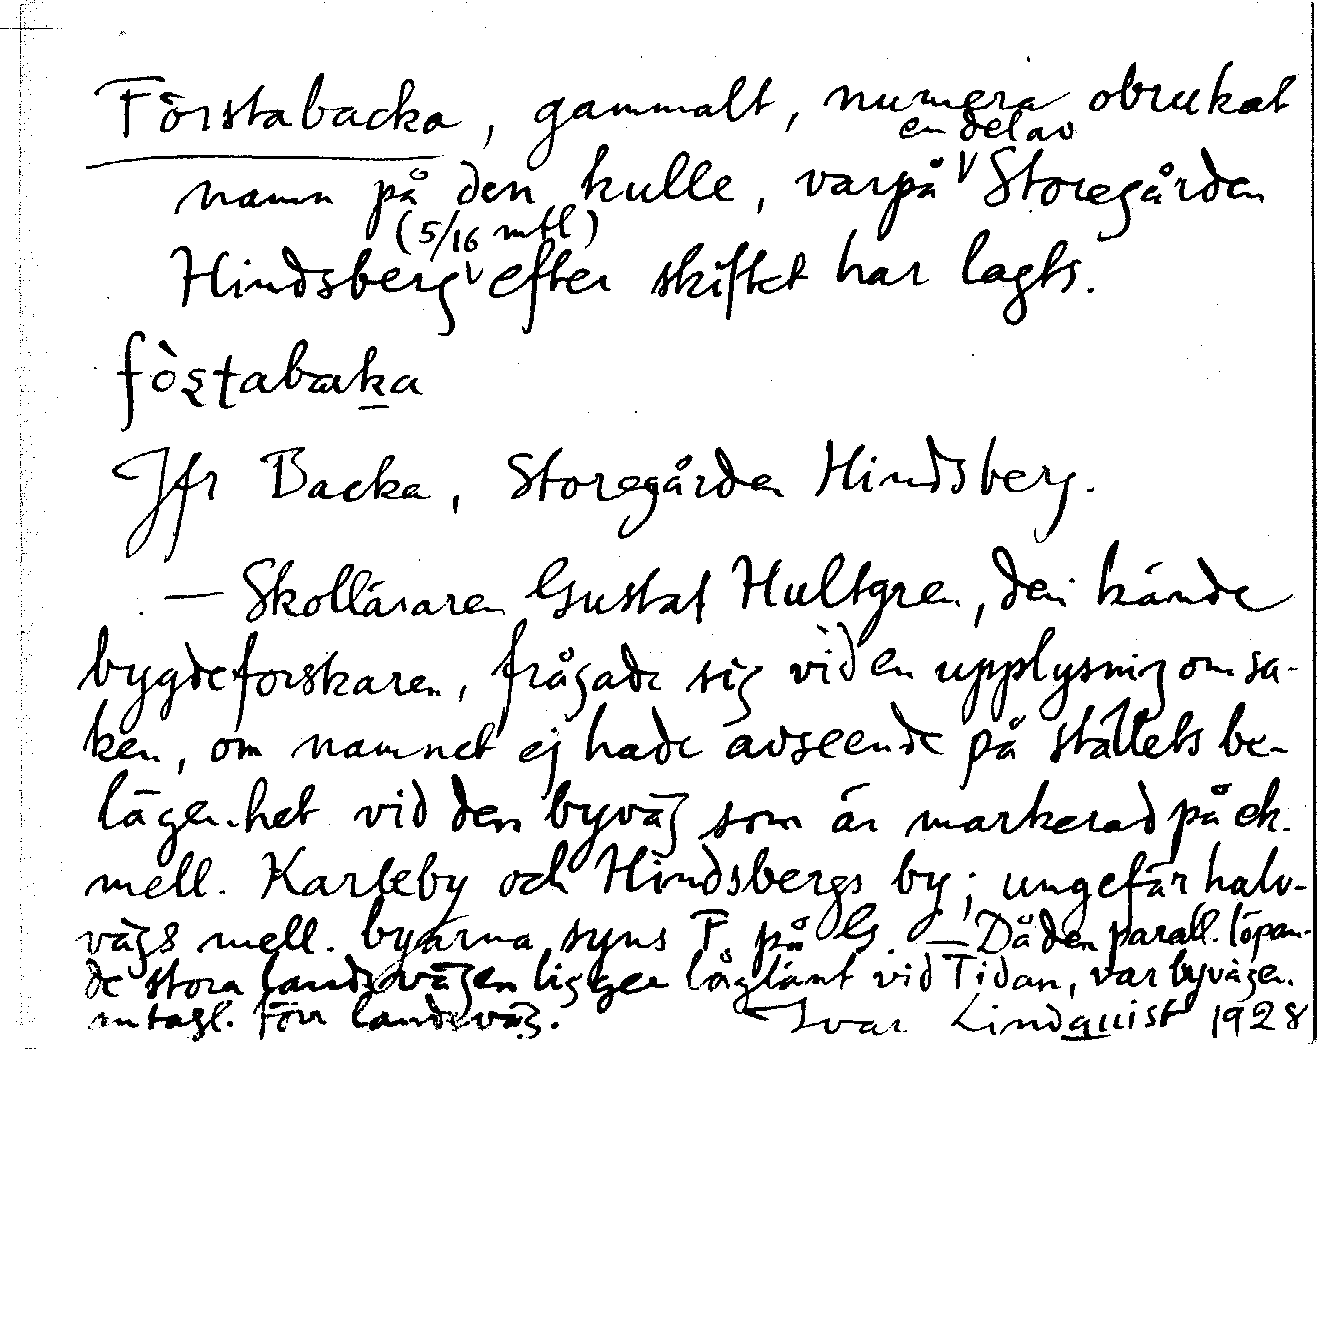 Förstabacka, gammalt, numera obrukat
en del av
namn på den kulle, varpå V Storegården
(5/16 mtl)
Hindsberg V efter skiftet har lagts.
fòʂʈabaka
Jfr Backa, Storegården Hindsberg.
— Skolläraren Gustaf Hultgren, den kände
bygdeforskaren, frågade sig vid en upplysning om sa-
ken, om namnet ej hade avseende på ställets be-
lägenhet vid den byväg som är markerad på ek.
mell. Karleby och Hindsbergs by; ungefär halv-
vägs mell. byarna syns F. på G. — Då den parall. löpan-
de stora landsvägen ligger låglänt vid Tidan, var byvägen
antagl. förr landsväg. Ivar Lindquist 1928